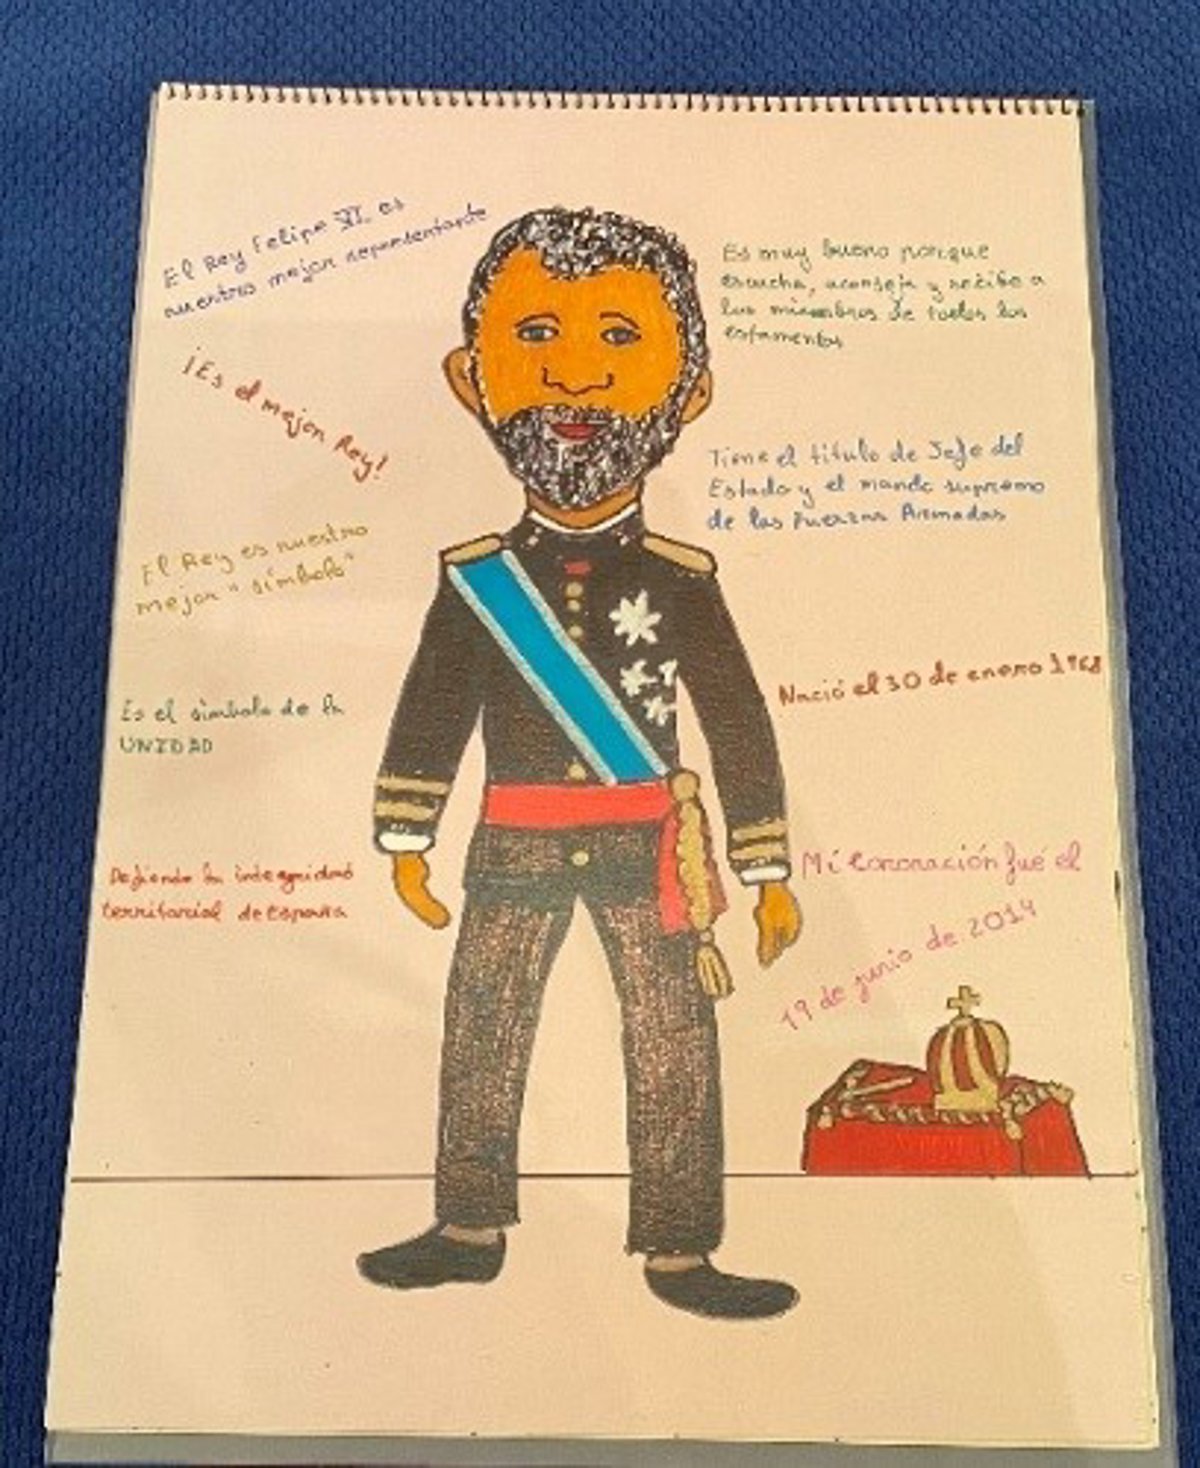 El Rey Felipe VI es
nuestros mejor representante
¡Es el mejor Rey!
El Rey es nuestro
mejor "símbolo"
Es el símbolo de la
UNIDAD
Defiende la integridad
territorial de España
Es muy bueno porque
escucha, aconseja y recibe a
los miembros de todos los
estamentos
Tiene el título de Jefe del
Estado y el mando supremo
de las Fuerzas Armadas
Nació el 30 de enero 1968
Mi Coronación fué el
19 de junio de 2014